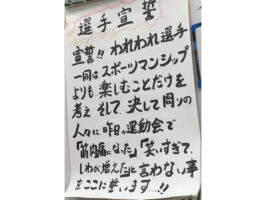 選手宣誓
宣誓!! われわれ選手
一同はスポーツマンシップ
よりも 楽しむことだけを
考え そして、決して周りの
人々に 昨日の運動会で
「筋肉痛になった」「笑いすぎて、
しわが増えた」と 言わない事
をここに 誓います…!!